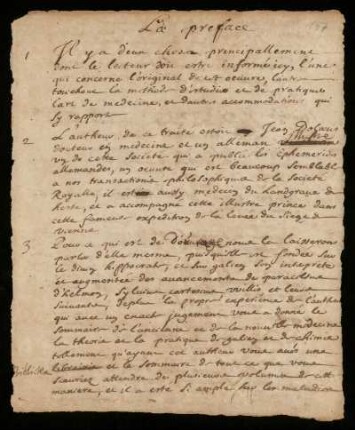 La preface
1 Il y a deux choses principallement
dont le lecteur doit estre informé icy, l'une
qui concerne l'original de cet oeuvre, l'autre
touchant la methode d'estudier et de pratiquer
l'art de medecine, et d'autres accommodations qui
s'y rapport
2 L'autheur de ce traite estoit Jean Dolæus
docteur en medecine et un alleman
un de cette Societé qui a publié les Ephemerides
allemandes, un oeuvre qui est beaucoup semblable
a nos transactions philosophiques de la Societé
Royalle, il estoit aussy medecin du landgrave de
hesse, et a accompagné cette illustre prince dans
cette fameuse expedition de la levée du Siege de
Vienne
3 Pour ce qui est de l'ouvrage nous le laisserons
parler d'elle mesme, puisqu'elle se fondée sur
le divin hippocrate, et sur galien son interprete
et augmentée des avancements de paracelse
d'helmont, Sylvius cartesius willis et leurs
suivants, depuis la propre experience de l'autheur
qui avec un exact jugement vous a donné le
sommaire de l'ancienne et de la nouvelle medecine
la theorie et la pratique de galien et de chimie
tellement qu'ayant cet autheur vous avez une
et le sommaire de tout ce que vous
scauriez attendre de plusieurs volumes de cette
maniere, et il a esté si ample sur les maladies